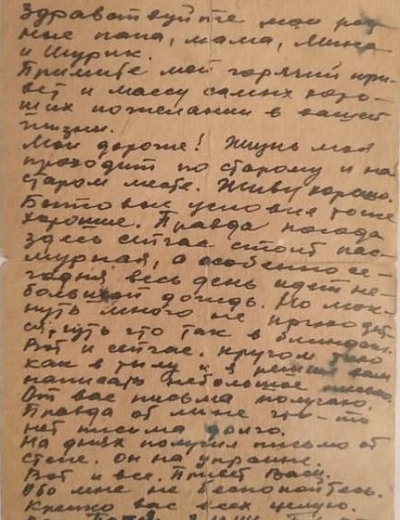 Здравствуйте мои род-
ные папа, мама, Мина
и Шурик.
Примите мой горячий при-
вет и массу самых хоро-
ших пожелании в вашей
жизни.
Мои дорогие! Жизнь моя
проходит по старому и на
старом месте. Живу хорошо.
Бытовые условие тоже
хорошие. Правда погода
здесь сейчас стоит пас-
мурная, а особенно се-
годня весь день идет не-
большой дождь. Но мок-
нуть много не приходит-
ся, чуть что так в блиндаж.
Вот и сейчас. кругом тихо
как в тылу и я решил вам
написать небольшое письмо.
От вас письма получаю.
Правда от мине что-то
нет письма долго.
На днях получил письмо от
степе. он на украине.
Вот и все. Привет Васи.
Обо мне не беспокойтесь.
Крепко вас всех целую.